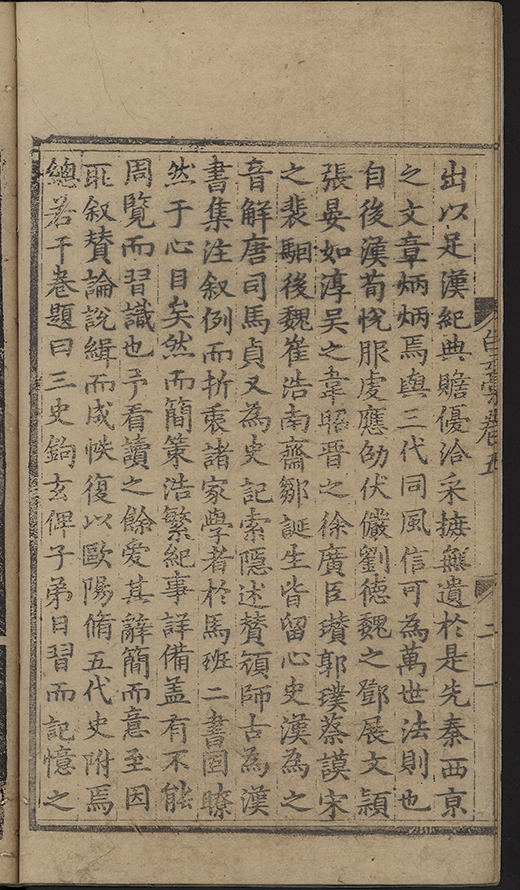 白雲稾卷五
二
出以足漢紀典贍優洽采摭無遺於是先秦西京
之文章炳炳焉與三代同風信可為萬世法則也
自後漢荀恱服虔應劭伏儼劉徳魏之鄧展文頴
張晏如淳吳之韋昭晉之徐廣臣瓉郭璞蔡謨宋
之裴駰後魏崔浩南齋鄒誕生皆留心史漢為之
音解唐司馬貞又為史記索隱述賛顔師古為漢
書集注叙例而折衷諸家學者於馬班二書固瞭
然于心目矣然而簡策浩繁紀事詳備盖有不能
周覽而習識也予看讀之餘愛其辭簡而意至因
取叙賛論說緝而成帙復以歐陽脩五代史附焉
總若干卷題曰三史鉤玄俾子弟日習而記憶之